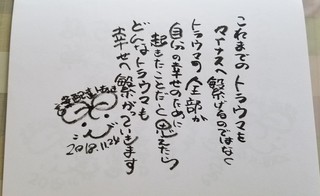 これまでのトラウマを
マイナスへ繋げるのではなく
トラウマの全部が
自分の幸せのために
起きたことだと思えたら
どんなトラウマも
幸せへ繋がっていきます
2018.11.24